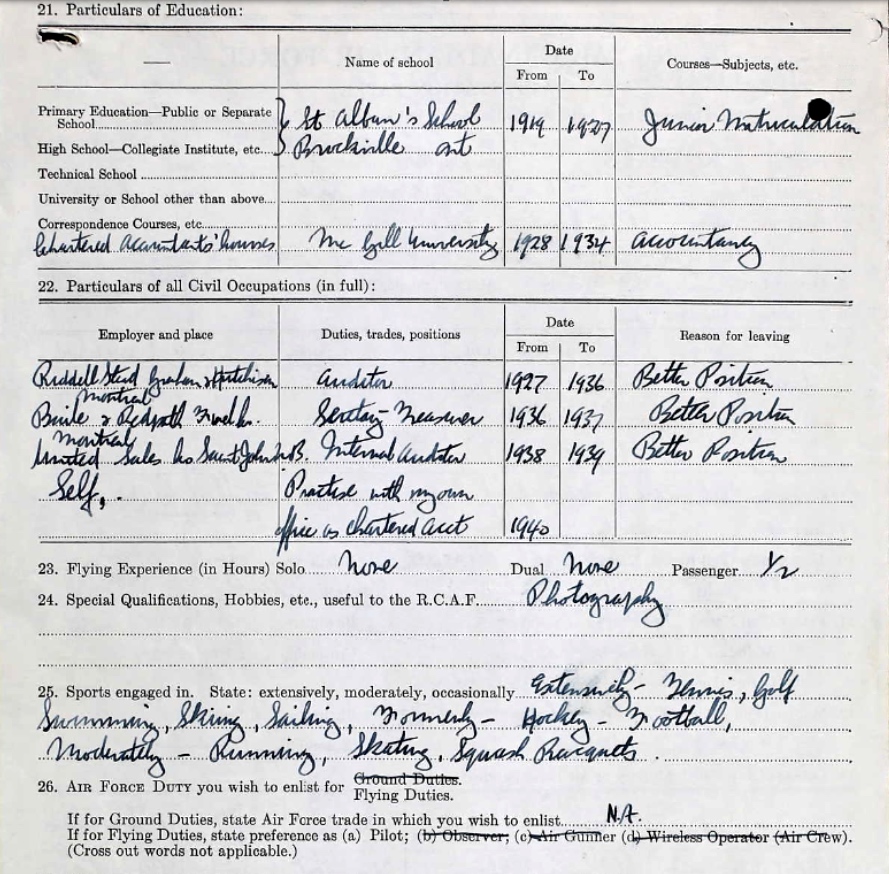 21. Particulars of Education:
Name of school
Date
From To
Courses—Subjects, etc.
Primary Education—Public or Separate School
St Alban's School 1919 1927 Junior Matriculation
High School—Collegiate Institute, etc.
Brockville Ont
Technical School
University or School other than above
Correspondence Courses, etc.
Chartered Accountants' Courses Mc Gill University 1928 1934 Accountancy
22. Particulars of all Civil Occupations (in full):
Employer and place
Duties, trades, positions
Date
From To
Reason for leaving
Riddell Stead Graham & Hutchison Auditor 1927 1936 Better Position
Montreal
& Redpath Secretary-Treasurer 1936 1937 Better Position
Montreal
United Sales Saint John N.B. Internal Auditor 1938 1939 Better Position
Self, Practise with my own
office as chartered acct 1940
23. Flying Experience (in Hours) Solo None Dual None Passenger 1/2
24. Special Qualifications, Hobbies, etc., useful to the R.C.A.F. Photography
25. Sports engaged in. State: extensively, moderately, occasionally Extensively - Tennis, Golf
Swimming, Skiing, Sailing, Formerly - Hockey - Football,
Moderately - Running, Skating, Squash Racquets.
26. AIR FORCE DUTY you wish to enlist for Ground Duties.
Flying Duties.
If for Ground Duties, state Air Force trade in which you wish to enlist N.A.
If for Flying Duties, state preference as (a) Pilot; (b) Observer; (c) Air Gunner (d) Wireless Operator (Air Crew).
(Cross out words not applicable.)